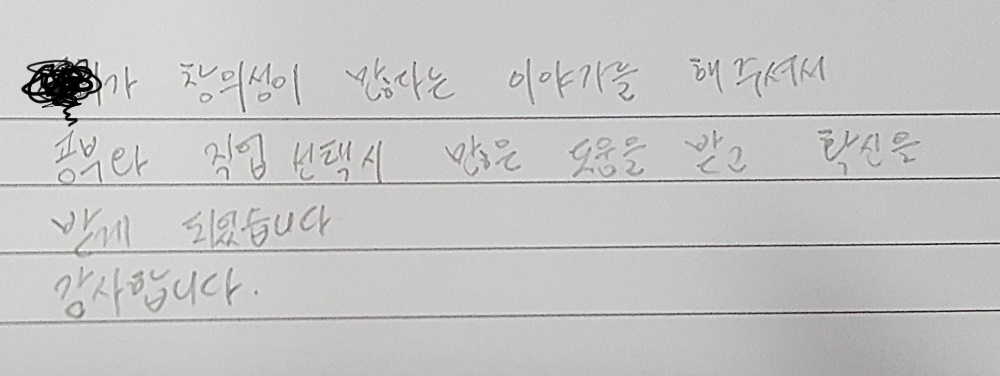 가 창의성이 많다는 이야기를 해 주셔서
공부와 직업 선택시 많은 도움을 받고 확신을
받게 되었습니다
감사합니다.